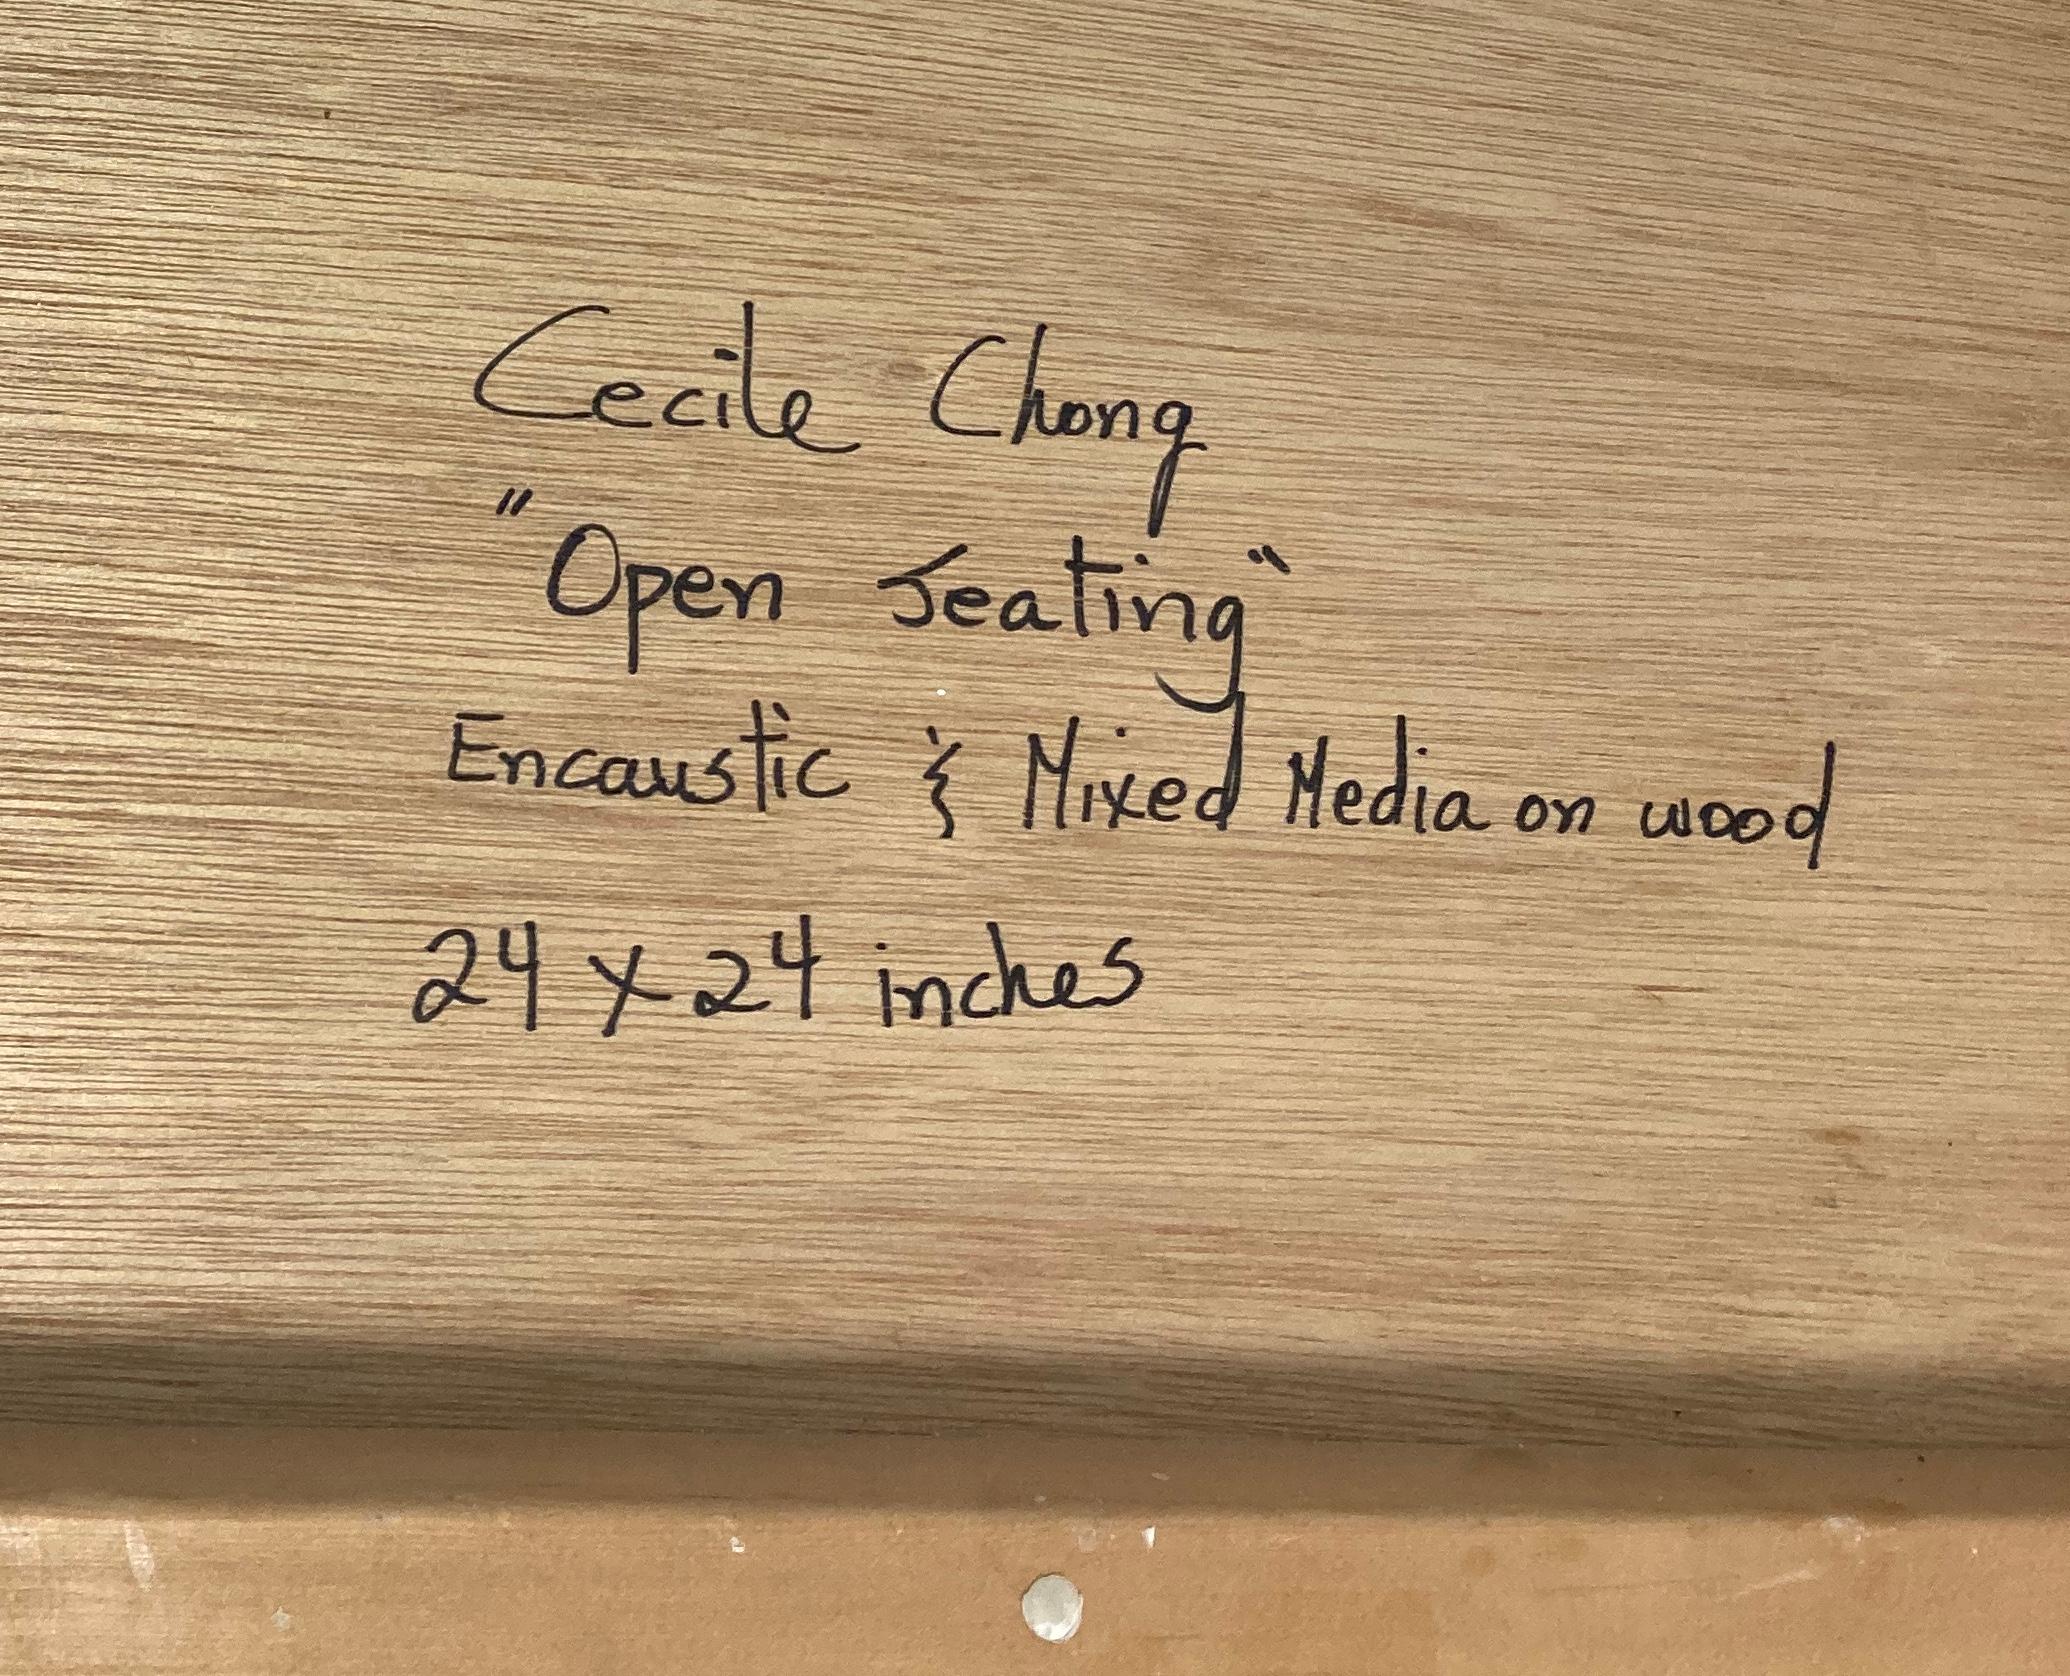 Cecile Chong
"Open Seating"
Encaustic & Mixed Media on wood
24 x 24 inches